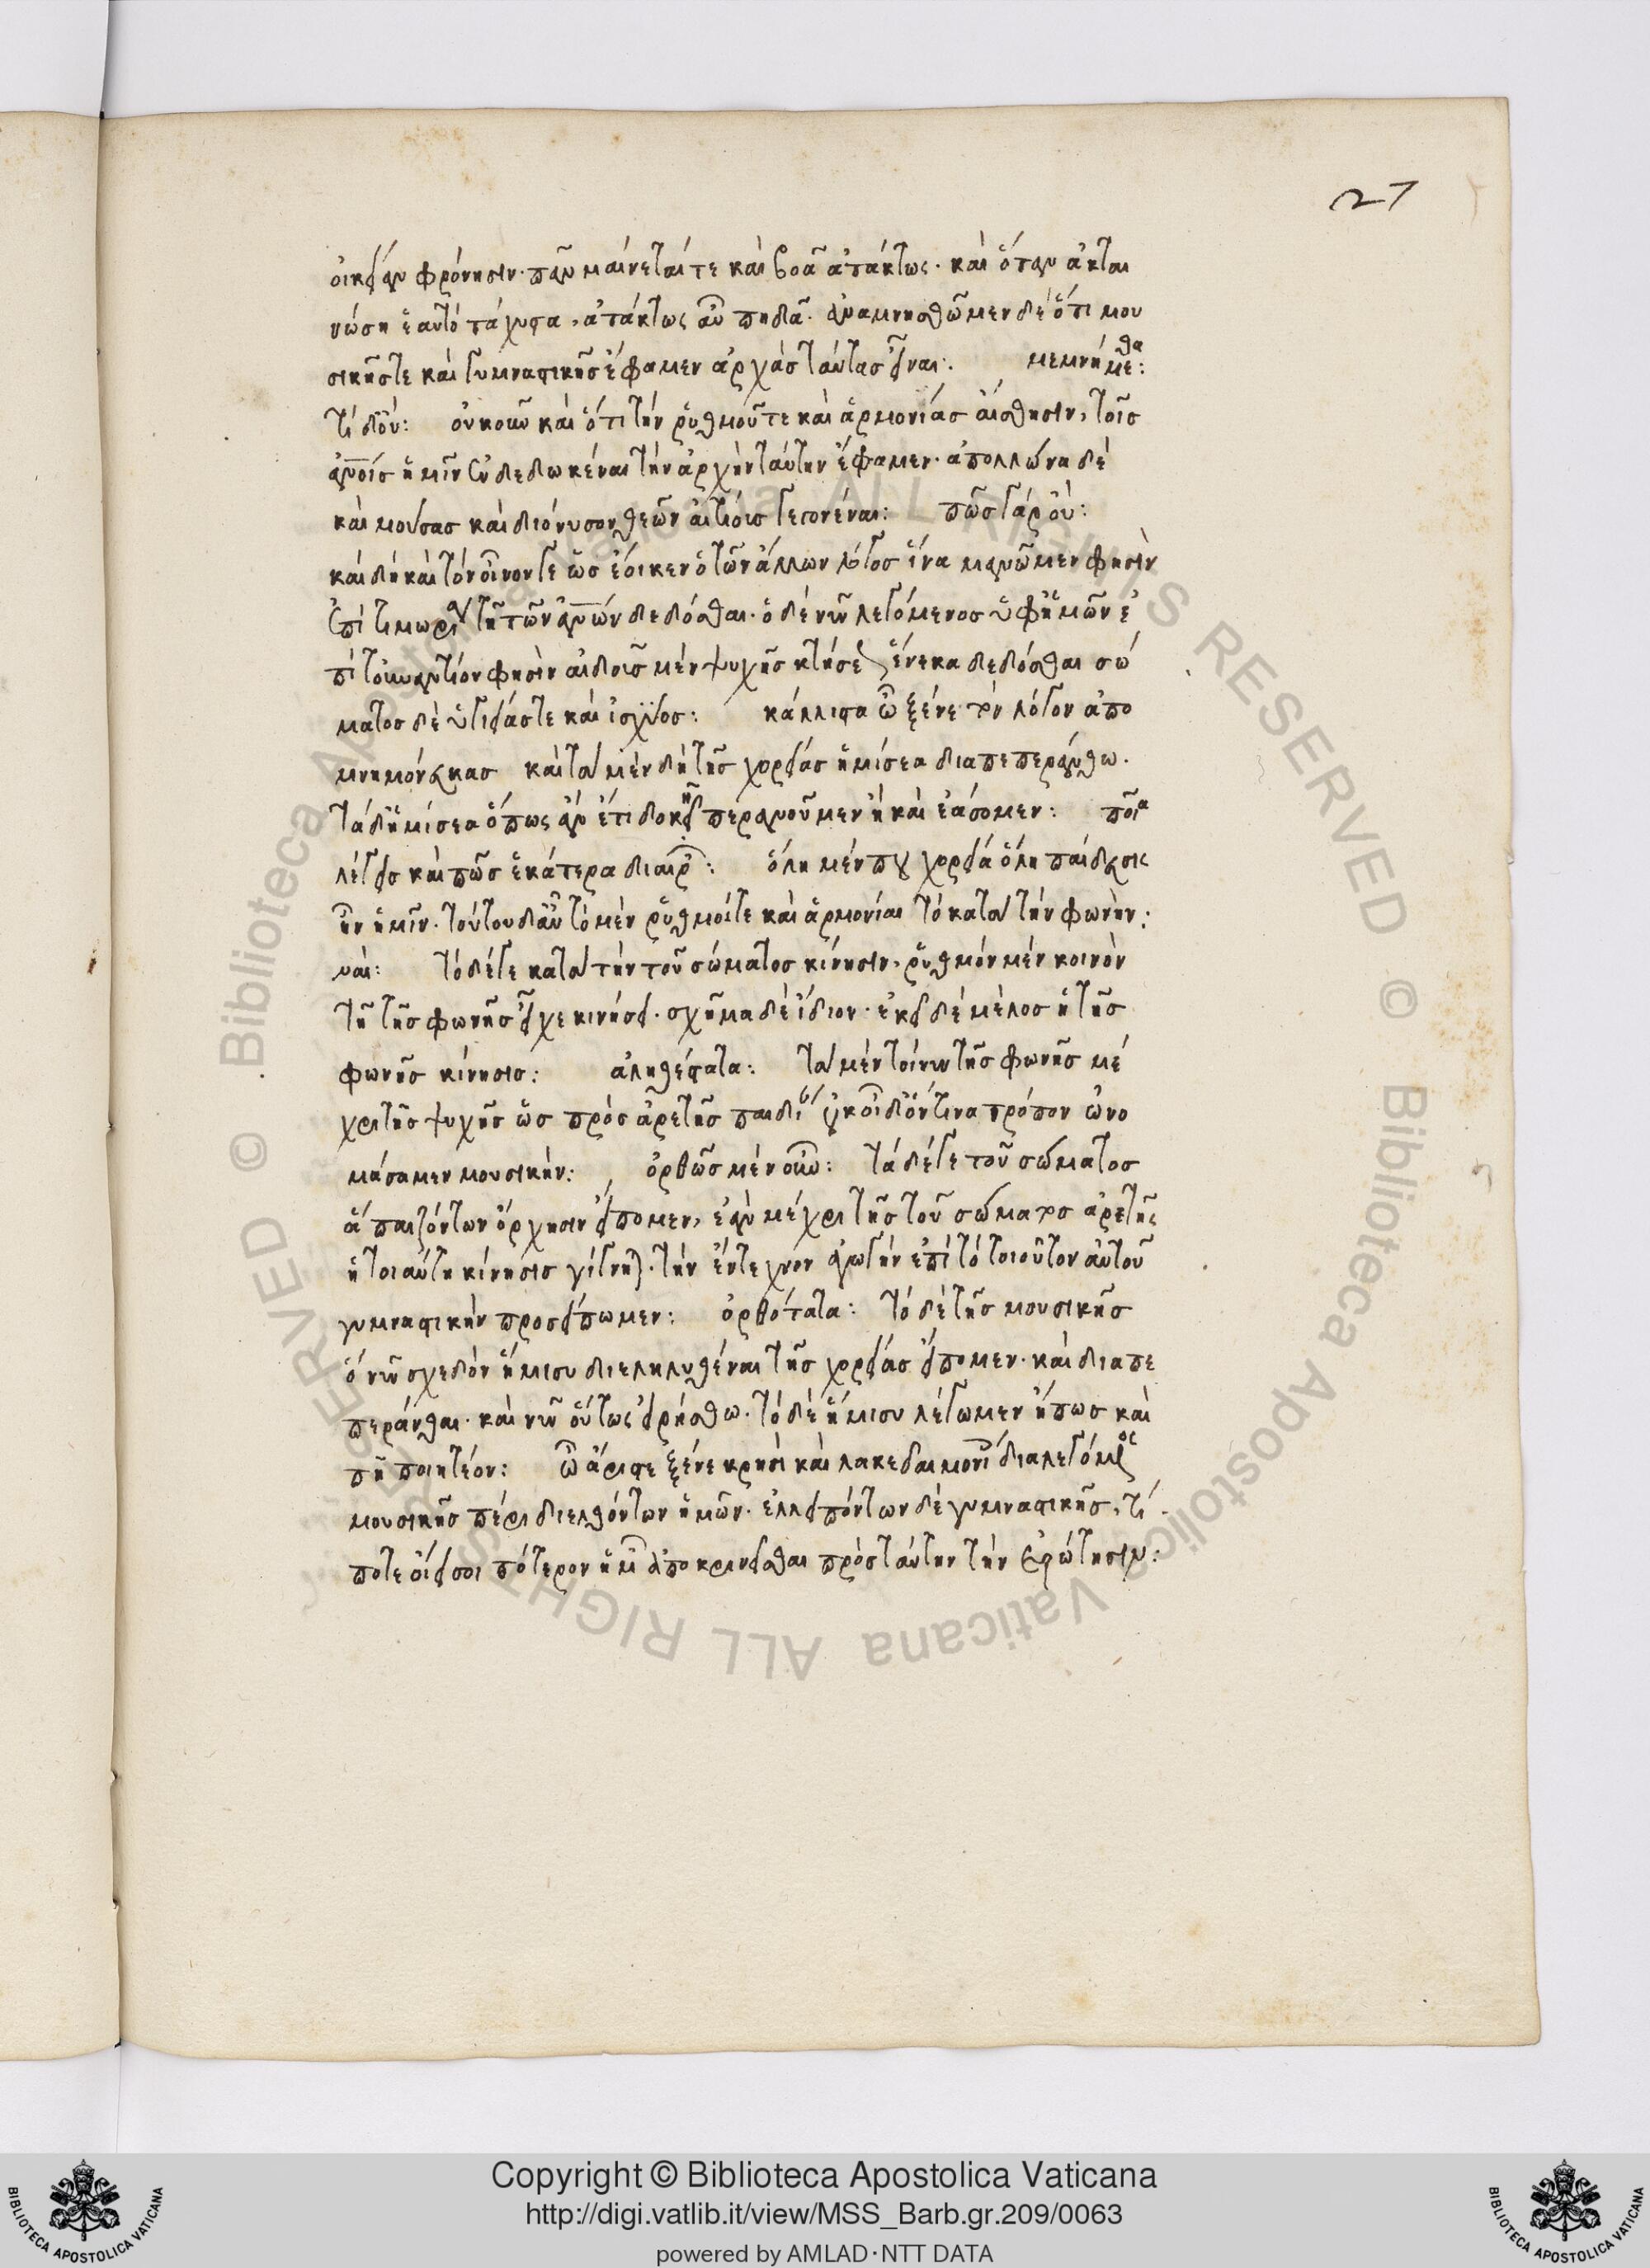 27
οἰκείαν φρόνησιν. πᾶν μαίνεταί τε καὶ βοᾶ ἀτάκτως. καὶ ὅταν ἀκται
νώση ἑαυτὸ τάχιστα, ἀτάκτως αὖ πηδᾶ. ἀναμνησθῶμεν δὲ ὅτι μου
σικῆς τε καὶ γυμναστικῆς ἔφαμεν ἀρχὰς ταύτας εἶναι: μεμνήμεθα:
τί δ' οὔ: οὐκοῦν καὶ ὅτι τὴν ῥυθμοῦ τε καὶ ἁρμονίας αἴσθησιν, τοῖς
ἀνοις ἡμῖν ἐνδεδωκέναι τὴν ἀρχὴν ταύτην ἔφαμεν. ἀπόλλωνα δὲ
καὶ μούσας καὶ διόνυσον θεῶν αἰτίους γεγονέναι: πῶς γὰρ οὔ:
καὶ δὴ καὶ τὸν οἶνόν γε ὡς ἔοικεν ὁ τῶν ἄλλων λόγος ἵνα μανῶμεν φησὶν
ἐπὶ τιμωρίᾳ τῇ τῶν ἀνων δεδόσθαι. ὁ δὲ νῦν λεγόμενος ὑφ' ἡμῶν ἐ
πὶ τοὐναντίον φησὶν αἰδοῦς μὲν ψυχῆς κτήσεως ἕνεκα δεδόσθαι σώ
ματος δὲ ὑγιείας τε καὶ ἰσχύος: κάλλιστα ὦ ξένε τὸν λόγον ἀπο
μνημόνευκας καὶ τὰ μὲν δὴ τῆς χορείας ἡμίσεα διαπεπεράνθω.
τὰ δ' ἡμίσεα ὅπως ἂν ἔτι δοκῇ περανοῦμεν ἢ καὶ ἐάσομεν: ποῖα
λέγεις καὶ πῶς ἑκάτερα διαιρῶν: ὅλη μέν που χορεία ὅλη παίδευσις
ἦν ἡμῖν. τούτου δ' αὖ τὸ μὲν ῥυθμοί τε καὶ ἁρμονίαι τὸ κατὰ τὴν φωνήν:
ναί: τὸ δέ γε κατὰ τὴν τοῦ σώματος κίνησιν, ῥυθμὸν μὲν κοινὸν
τῇ τῆς φωνῆς εἶχε κινήσει. σχῆμα δὲ ἴδιον. ἐκεῖ δὲ μέλος ἡ τῆς
φωνῆς κίνησις: ἀληθέστατα: τὰ μὲν τοίνυν τῆς φωνῆς μέ
χρι τῆς ψυχῆς ὡς πρὸς ἀρετῆς παιδείαν οὐκ οἶδ' ὅντινα τρόπον ὠνο
μάσαμεν μουσικήν: ὀρθῶς μὲν οὖν: τὰ δέ γε τοῦ σώματος
ἃ παιζόντων ὄρχησιν εἴπομεν, ἐὰν μέχρι τῆς τοῦ σώματος ἀρετῆς
ἡ τοιαύτη κίνησις γίγνηται. τὴν ἔντεχνον ἀγωγὴν ἐπὶ τὸ τοιοῦτον αὐτοῦ
γυμναστικὴν προσείπωμεν: ὀρθότατα: τὸ δὲ τῆς μουσικῆς
ὃ νῦν σχεδὸν ἥμισυ διεληλυθέναι τῆς χορείας εἴπομεν. καὶ διαπε
περάνθαι. καὶ νῦν οὕτως εἰρήσθω. τὸ δὲ ἥμισυ λέγωμεν ἢ πῶς καὶ
πῇ ποιητέον: ὦ ἄριστε ξένε κρησὶ καὶ λακεδαιμονίοις διαλεγόμενος
μουσικῆς πέρι διελθόντων ἡμῶν. ἐλλειπόντων δὲ γυμναστικῆς, τί
ποτε οἴει σοι πότερον ἡμῖν ἀποκρινεῖσθαι πρὸς ταύτην τὴν ἐρώτησιν:
© Biblioteca Apostolica Vaticana ALL RIGHTS RESERVED © Biblioteca Apostolica Vaticana ALL RIGHTS RESERVED
Copyright © Biblioteca Apostolica Vaticana
http://digi.vatlib.it/view/MSS_Barb.gr.209/0063
powered by AMLAD·NTT DATA
BIBLIOTECA APOSTOLICA VATICANA
BIBLIOTECA APOSTOLICA VATICANA